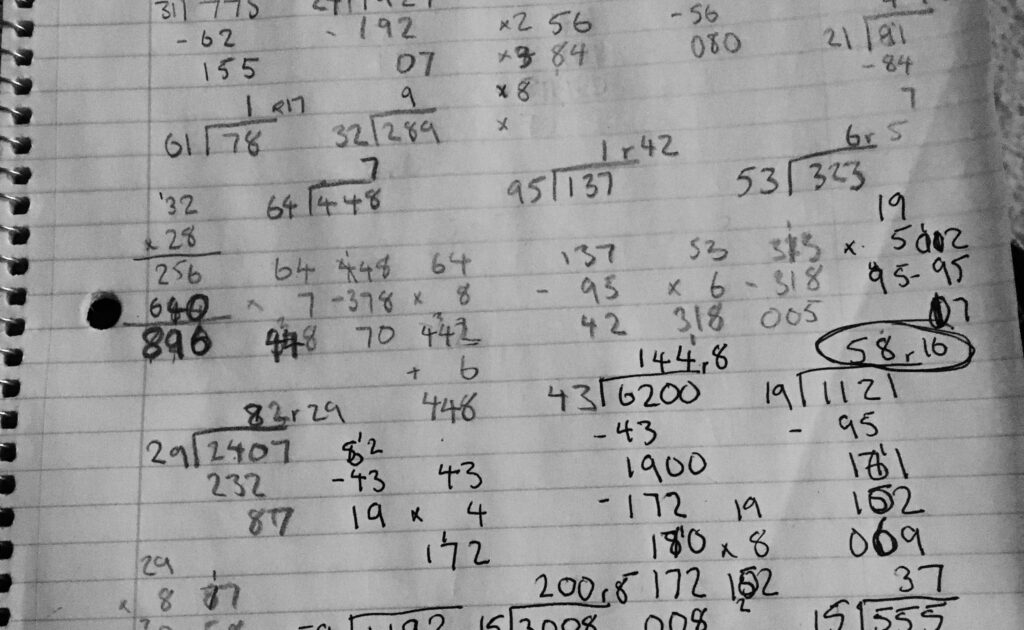 31 775
- 62
155
192
07
x2 56
x3 84
x8
x
-56
080
21 91
-84
7
1 r17
61 78
9
32 289
7
64 448
1 r 42
95 137
6 r 5
53 323
32
x 28
256
640
896
64
x 7
448
448
-378
70
64
x 8
442
+ 6
448
137
- 95
42
53
x 6
318
- 318
005
19
x 5
95
- 95
07
82 r 29
29 2407
232
87
82
-43
19
43
x 4
172
144 r 8
43 6200
-43
1900
-172
180
172
008
19
x 8
152
58 r 16
19 1121
- 95
152
069
29
x 8
200 r 8
15 3008
37
15 555